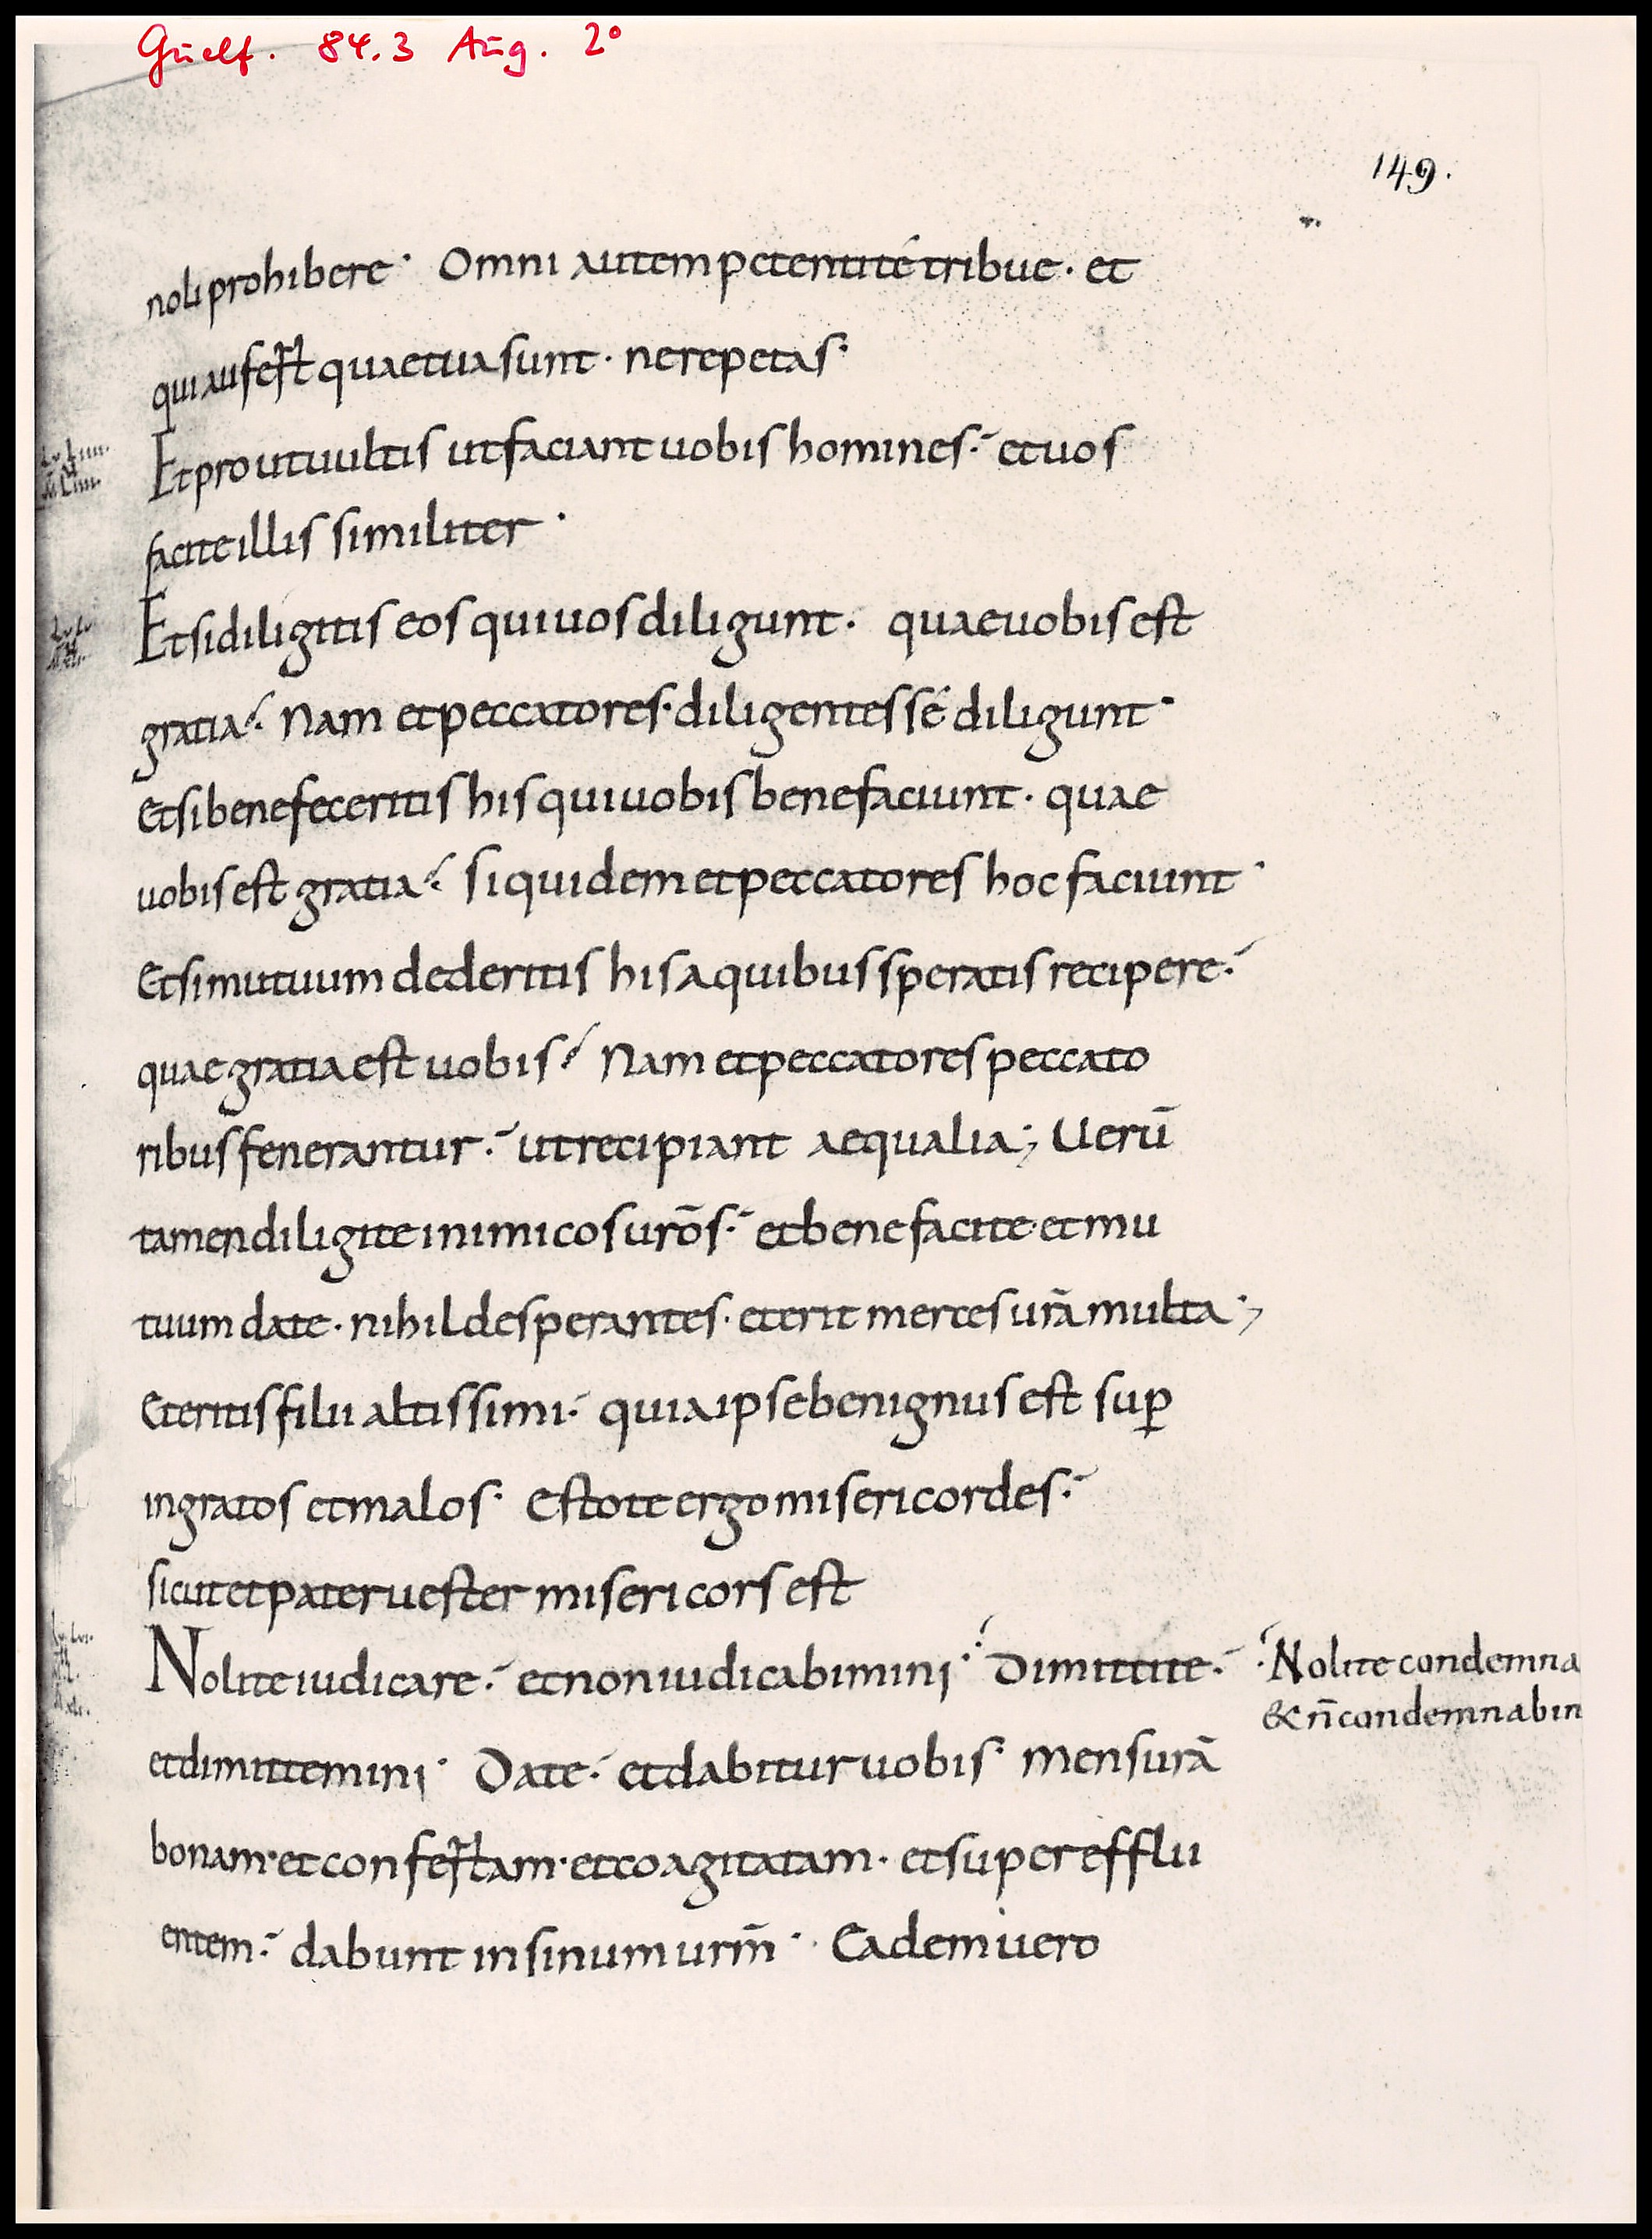 Guelf. 84.3 Aug. 2°
149.
noli prohibere· Omni autem petenti te tribue · et
qui aufert quae tua sunt · ne repetas·
Et prout uultis ut faciant uobis homines· et uos
facite illis similiter ·
Et si diligitis eos qui uos diligunt · quae uobis est
gratia? Nam et peccatores· diligentes se diligunt·
Et si bene feceritis his qui uobis bene faciunt · quae
uobis est gratia? si quidem et peccatores hoc faciunt·
Et si mutuum dederitis his a quibus speratis recipere·
quae gratia est uobis? Nam et peccatores peccato
ribus fenerantur · ut recipiant aequalia; Uerū
tamen diligite inimicos urōs· et bene facite· et mu
tuum date · nihil desperantes · et erit merces urā multa;
Et eritis filii altissimi· quia ipse benignus est suꝑ
ingratos et malos· Estote ergo misericordes·
sicut et pater uester misericors est
Nolite iudicare· et non iudicabimini· Dimittite· ·Nolite condemna
& n̄ condemnabin
et dimittemini· Date· et dabitur uobis· mensurā
bonam· et confertam· et coagitatam· et supereffлu
entem· dabunt in sinum urm̄ · Eadem uero